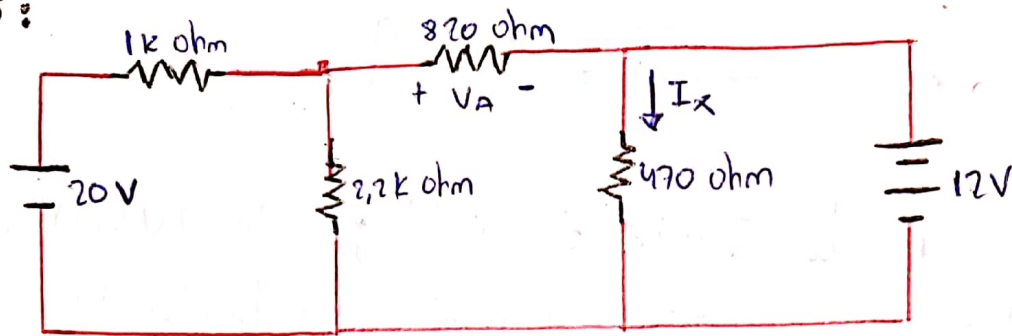 :
1k ohm
820 ohm
+ VA -
Ix
20V
2,2k ohm
470 ohm
12V